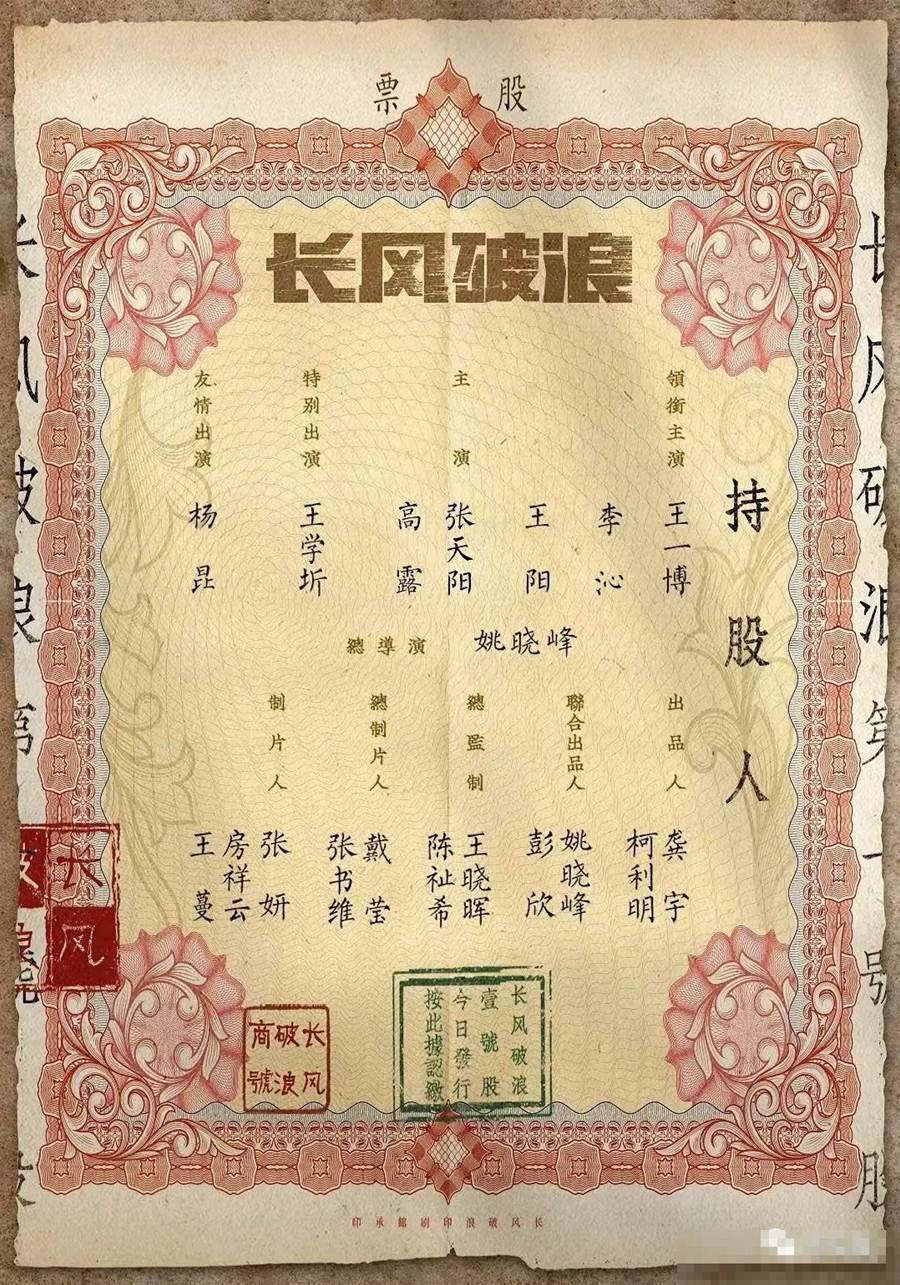 股票
长风破浪
持股人
領銜主演
王一博
李沁
主演
王阳
张天阳
高露
特别出演
王学圻
友情出演
杨昆
總導演 姚晓峰
出品人
龚宇
柯利明
聯合出品人
姚晓峰
彭欣
總監制
王晓晖
陈祉希
總制片人
戴莹
张书维
制片人
张妍
房祥云
王蔓
长风破浪
壹號股
今日發行
按此據認繳
长风
破浪
商號
长风
破浪
长风破浪第一號股
长风破浪第一號股
长风破浪印刷館承印